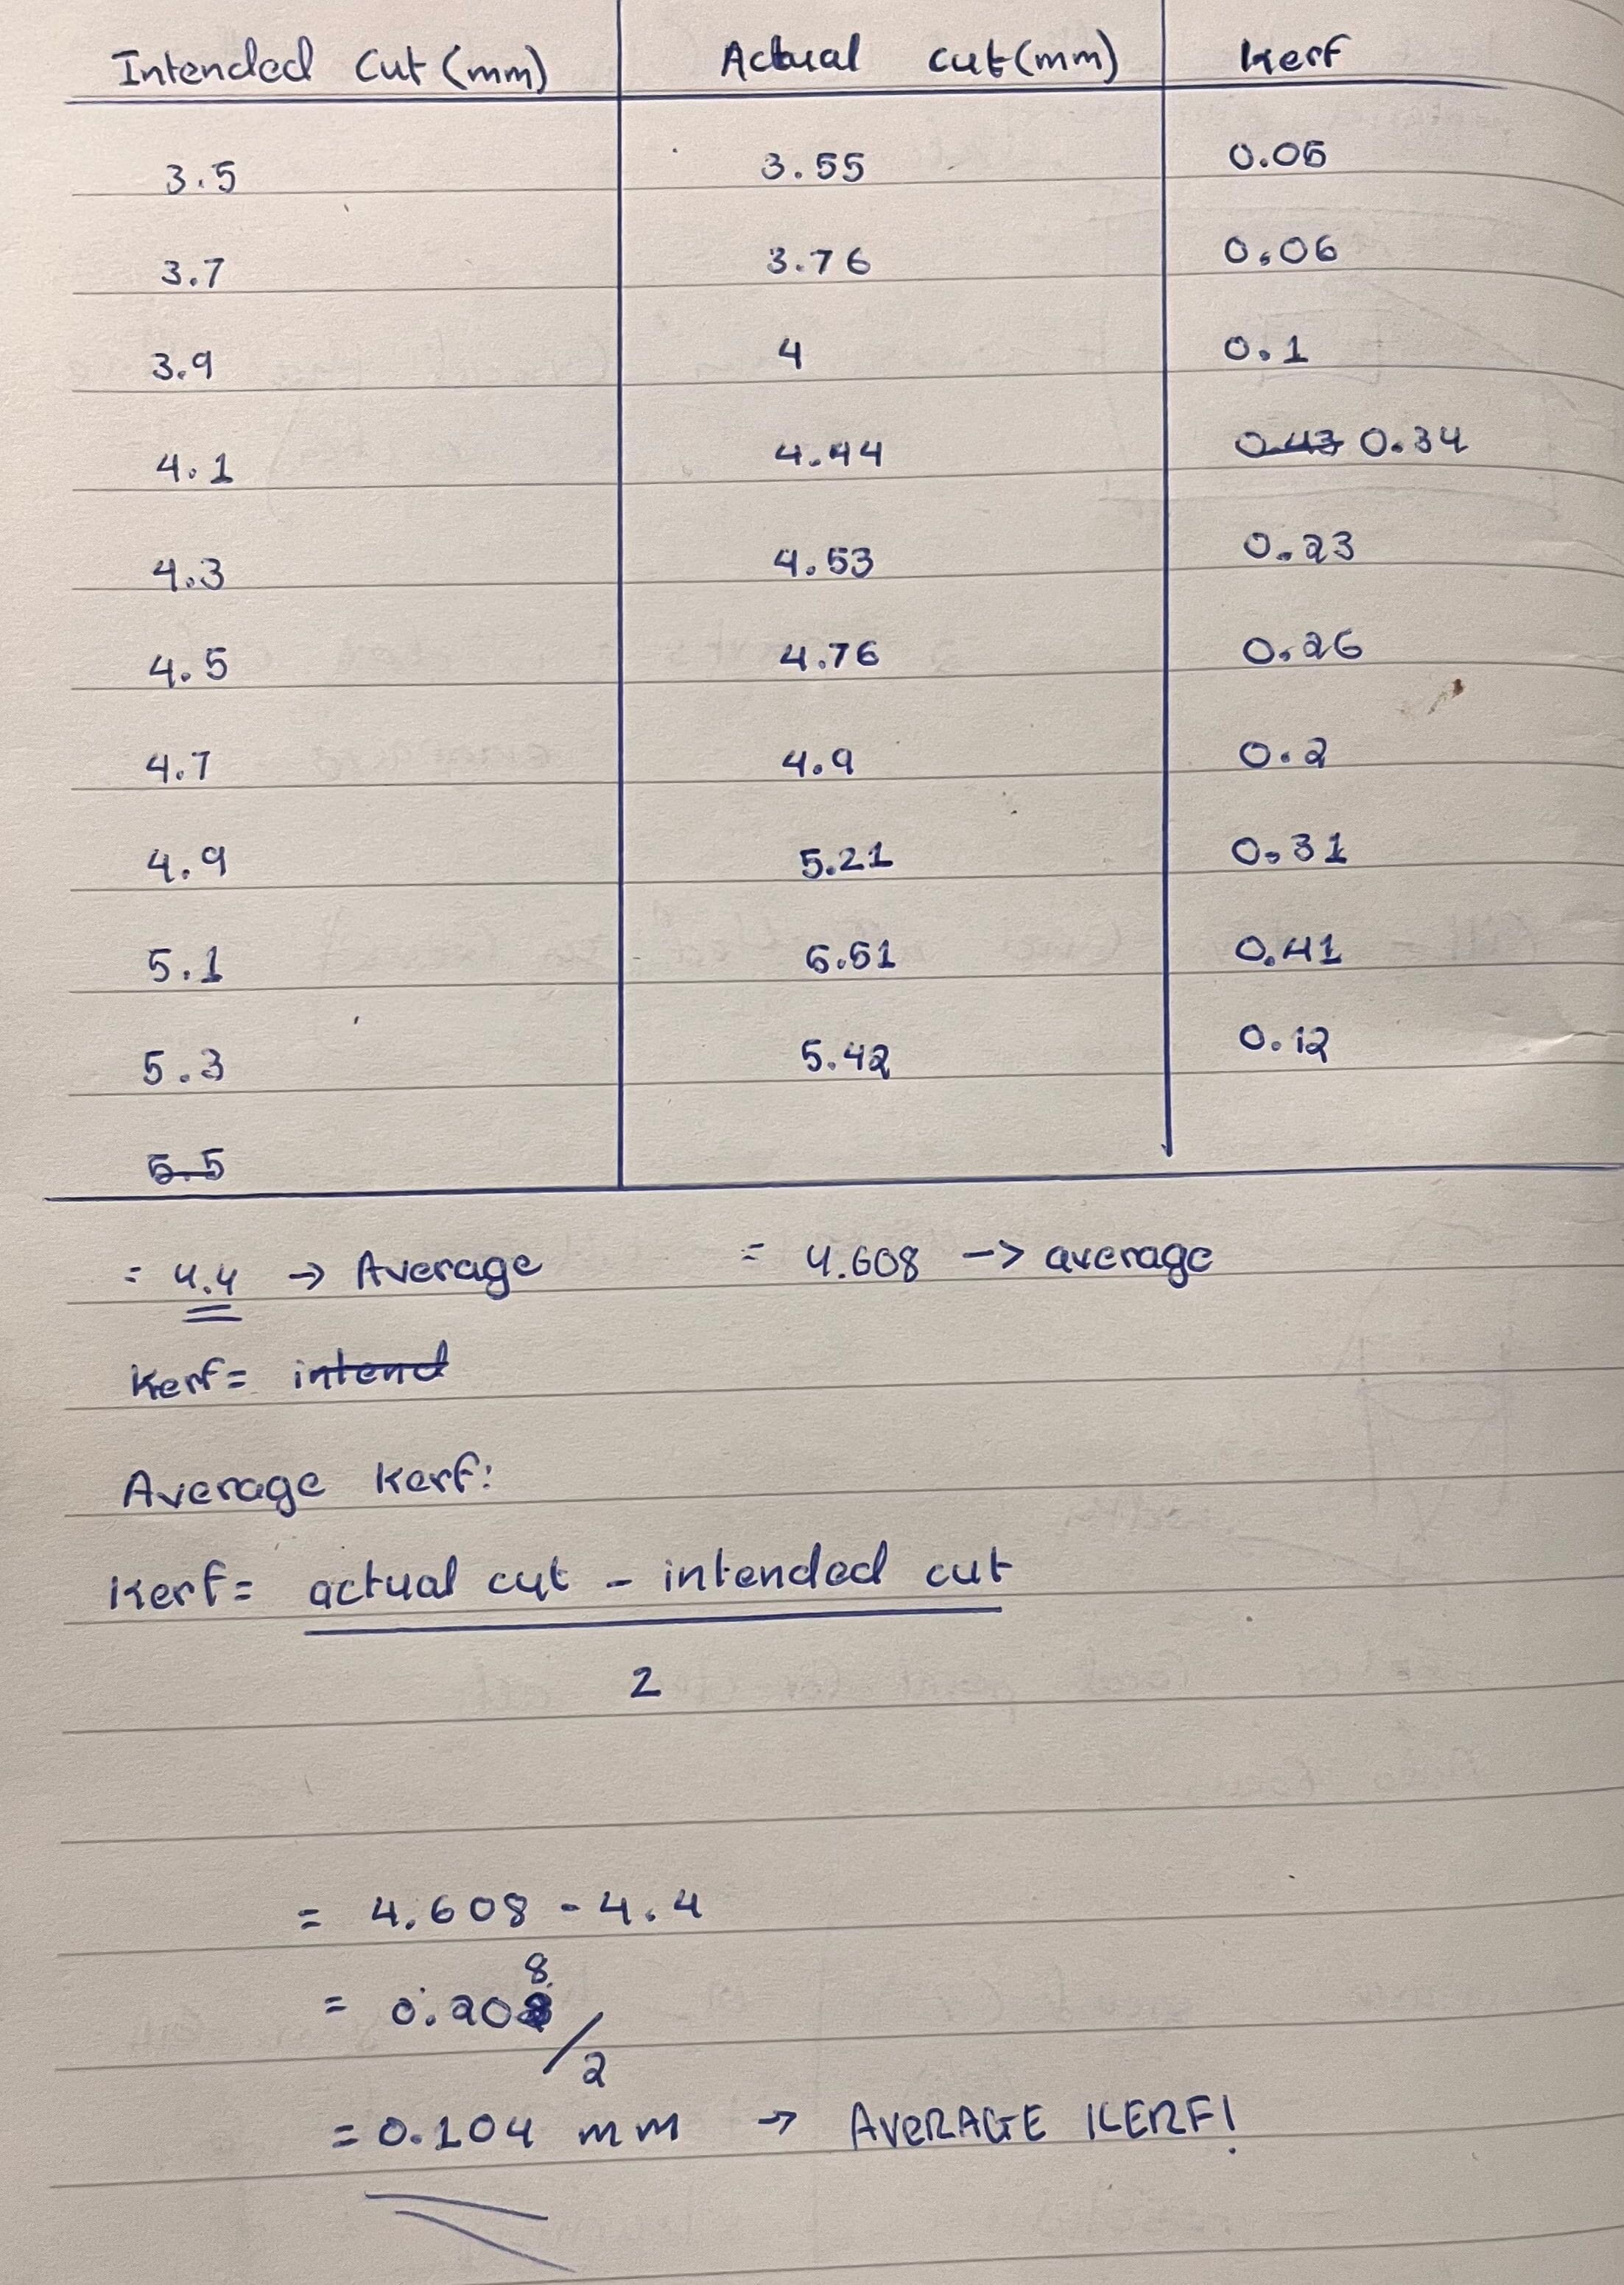 Intended Cut (mm) Actual cut (mm) Kerf
3.5 3.55 0.05
3.7 3.76 0.06
3.9 4 0.1
4.1 4.44 0.43 0.34
4.3 4.53 0.23
4.5 4.76 0.26
4.7 4.9 0.2
4.9 5.21 0.31
5.1 5.51 0.41
5.3 5.42 0.12
5.5
= 4.4 → Average = 4.608 → average
Kerf = intend
Average Kerf:
Kerf = actual cut - intended cut
2
= 4.608 - 4.4
8
= 0.208
/2
= 0.104 mm → AVERAGE KERF!